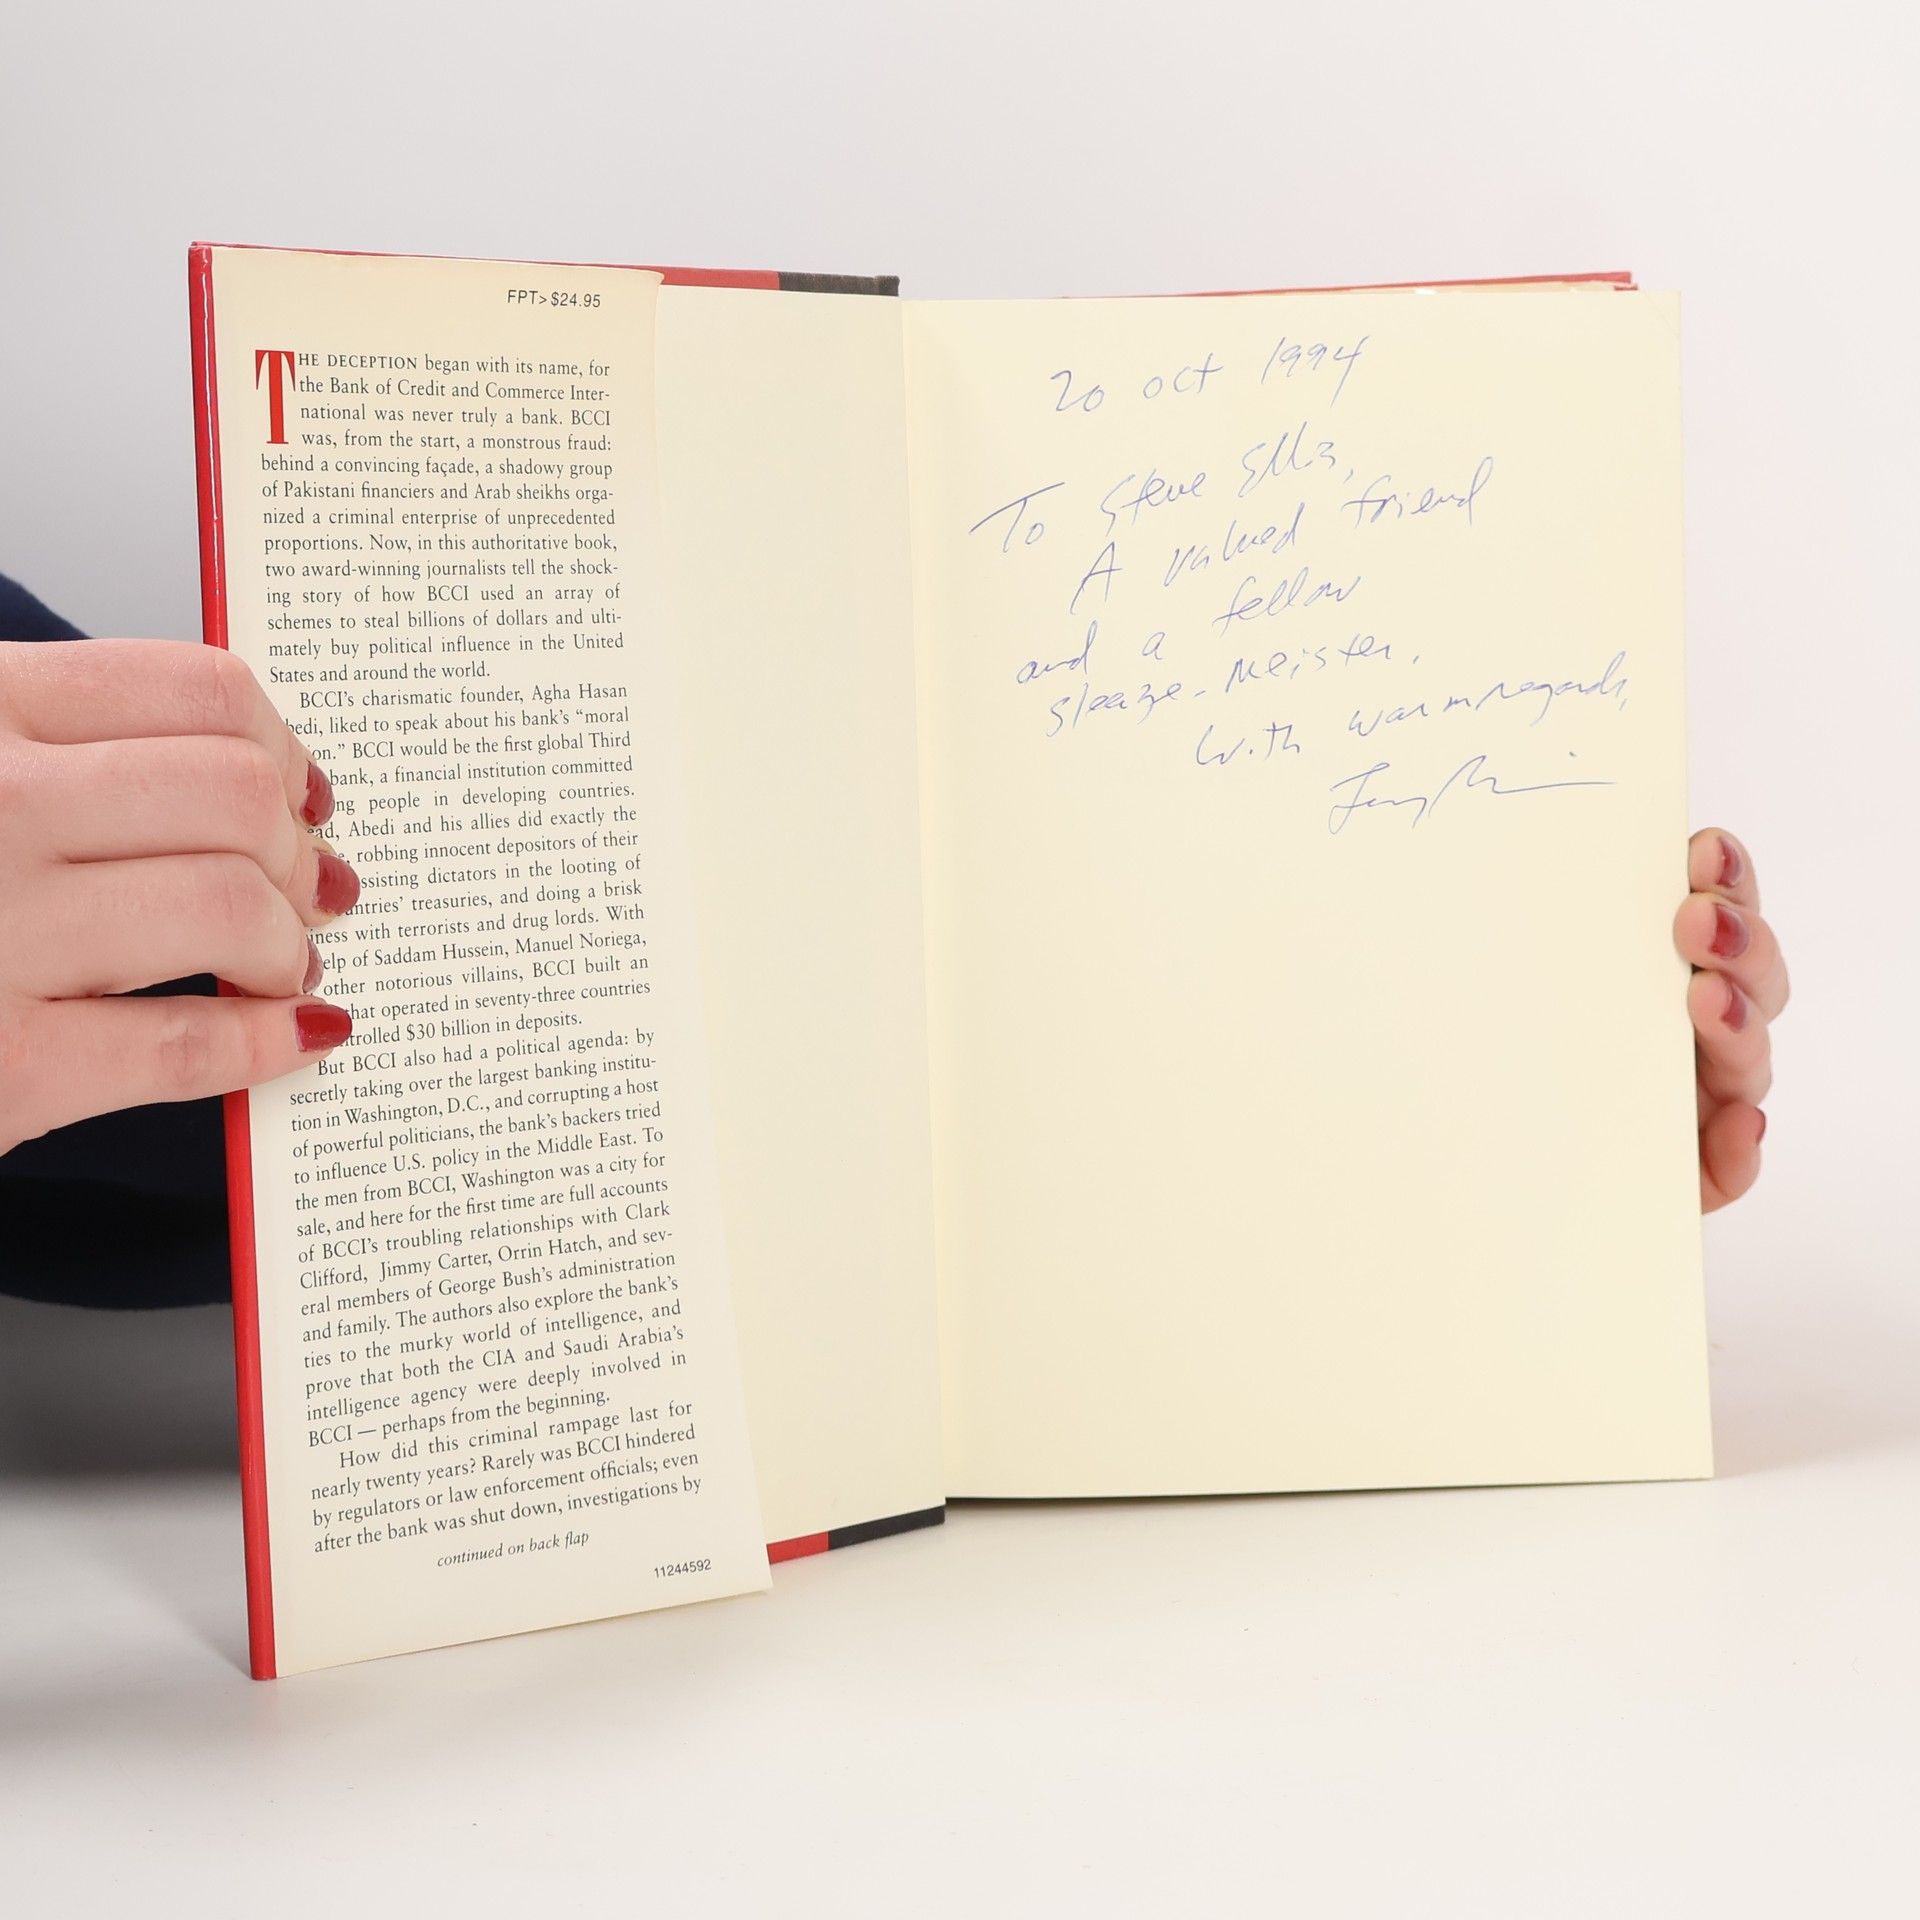 FPT> $24.95
THE DECEPTION began with its name, for
the Bank of Credit and Commerce Inter-
national was never truly a bank. BCCI
was, from the start, a monstrous fraud:
behind a convincing façade, a shadowy group
of Pakistani financiers and Arab sheikhs orga-
nized a criminal enterprise of unprecedented
proportions. Now, in this authoritative book,
two award-winning journalists tell the shock-
ing story of how BCCI used an array of
schemes to steal billions of dollars and ulti-
mately buy political influence in the United
States and around the world.
BCCI's charismatic founder, Agha Hasan
bedi, liked to speak about his bank's "moral
on." BCCI would be the first global Third
bank, a financial institution committed
ng people in developing countries.
ead, Abedi and his allies did exactly the
e, robbing innocent depositors of their
ssisting dictators in the looting of
untries' treasuries, and doing a brisk
iness with terrorists and drug lords. With
elp of Saddam Hussein, Manuel Noriega,
other notorious villains, BCCI built an
that operated in seventy-three countries
ntrolled $30 billion in deposits.
But BCCI also had a political agenda: by
secretly taking over the largest banking institu-
tion in Washington, D.C., and corrupting a host
of powerful politicians, the bank's backers tried
to influence U.S. policy in the Middle East. To
the men from BCCI, Washington was a city for
sale, and here for the first time are full accounts
of BCCI's troubling relationships with Clark
Clifford, Jimmy Carter, Orrin Hatch, and sev-
eral members of George Bush's administration
and family. The authors also explore the bank's
ties to the murky world of intelligence, and
prove that both the CIA and Saudi Arabia's
intelligence agency were deeply involved in
BCCI — perhaps from the beginning.
How did this criminal rampage last for
nearly twenty years? Rarely was BCCI hindered
by regulators or law enforcement officials; even
after the bank was shut down, investigations by
continued on back flap
11244592
20 oct 1994
To Steve Ellis,
A valued friend
and a fellow
sleaze-meister.
With warm regards,